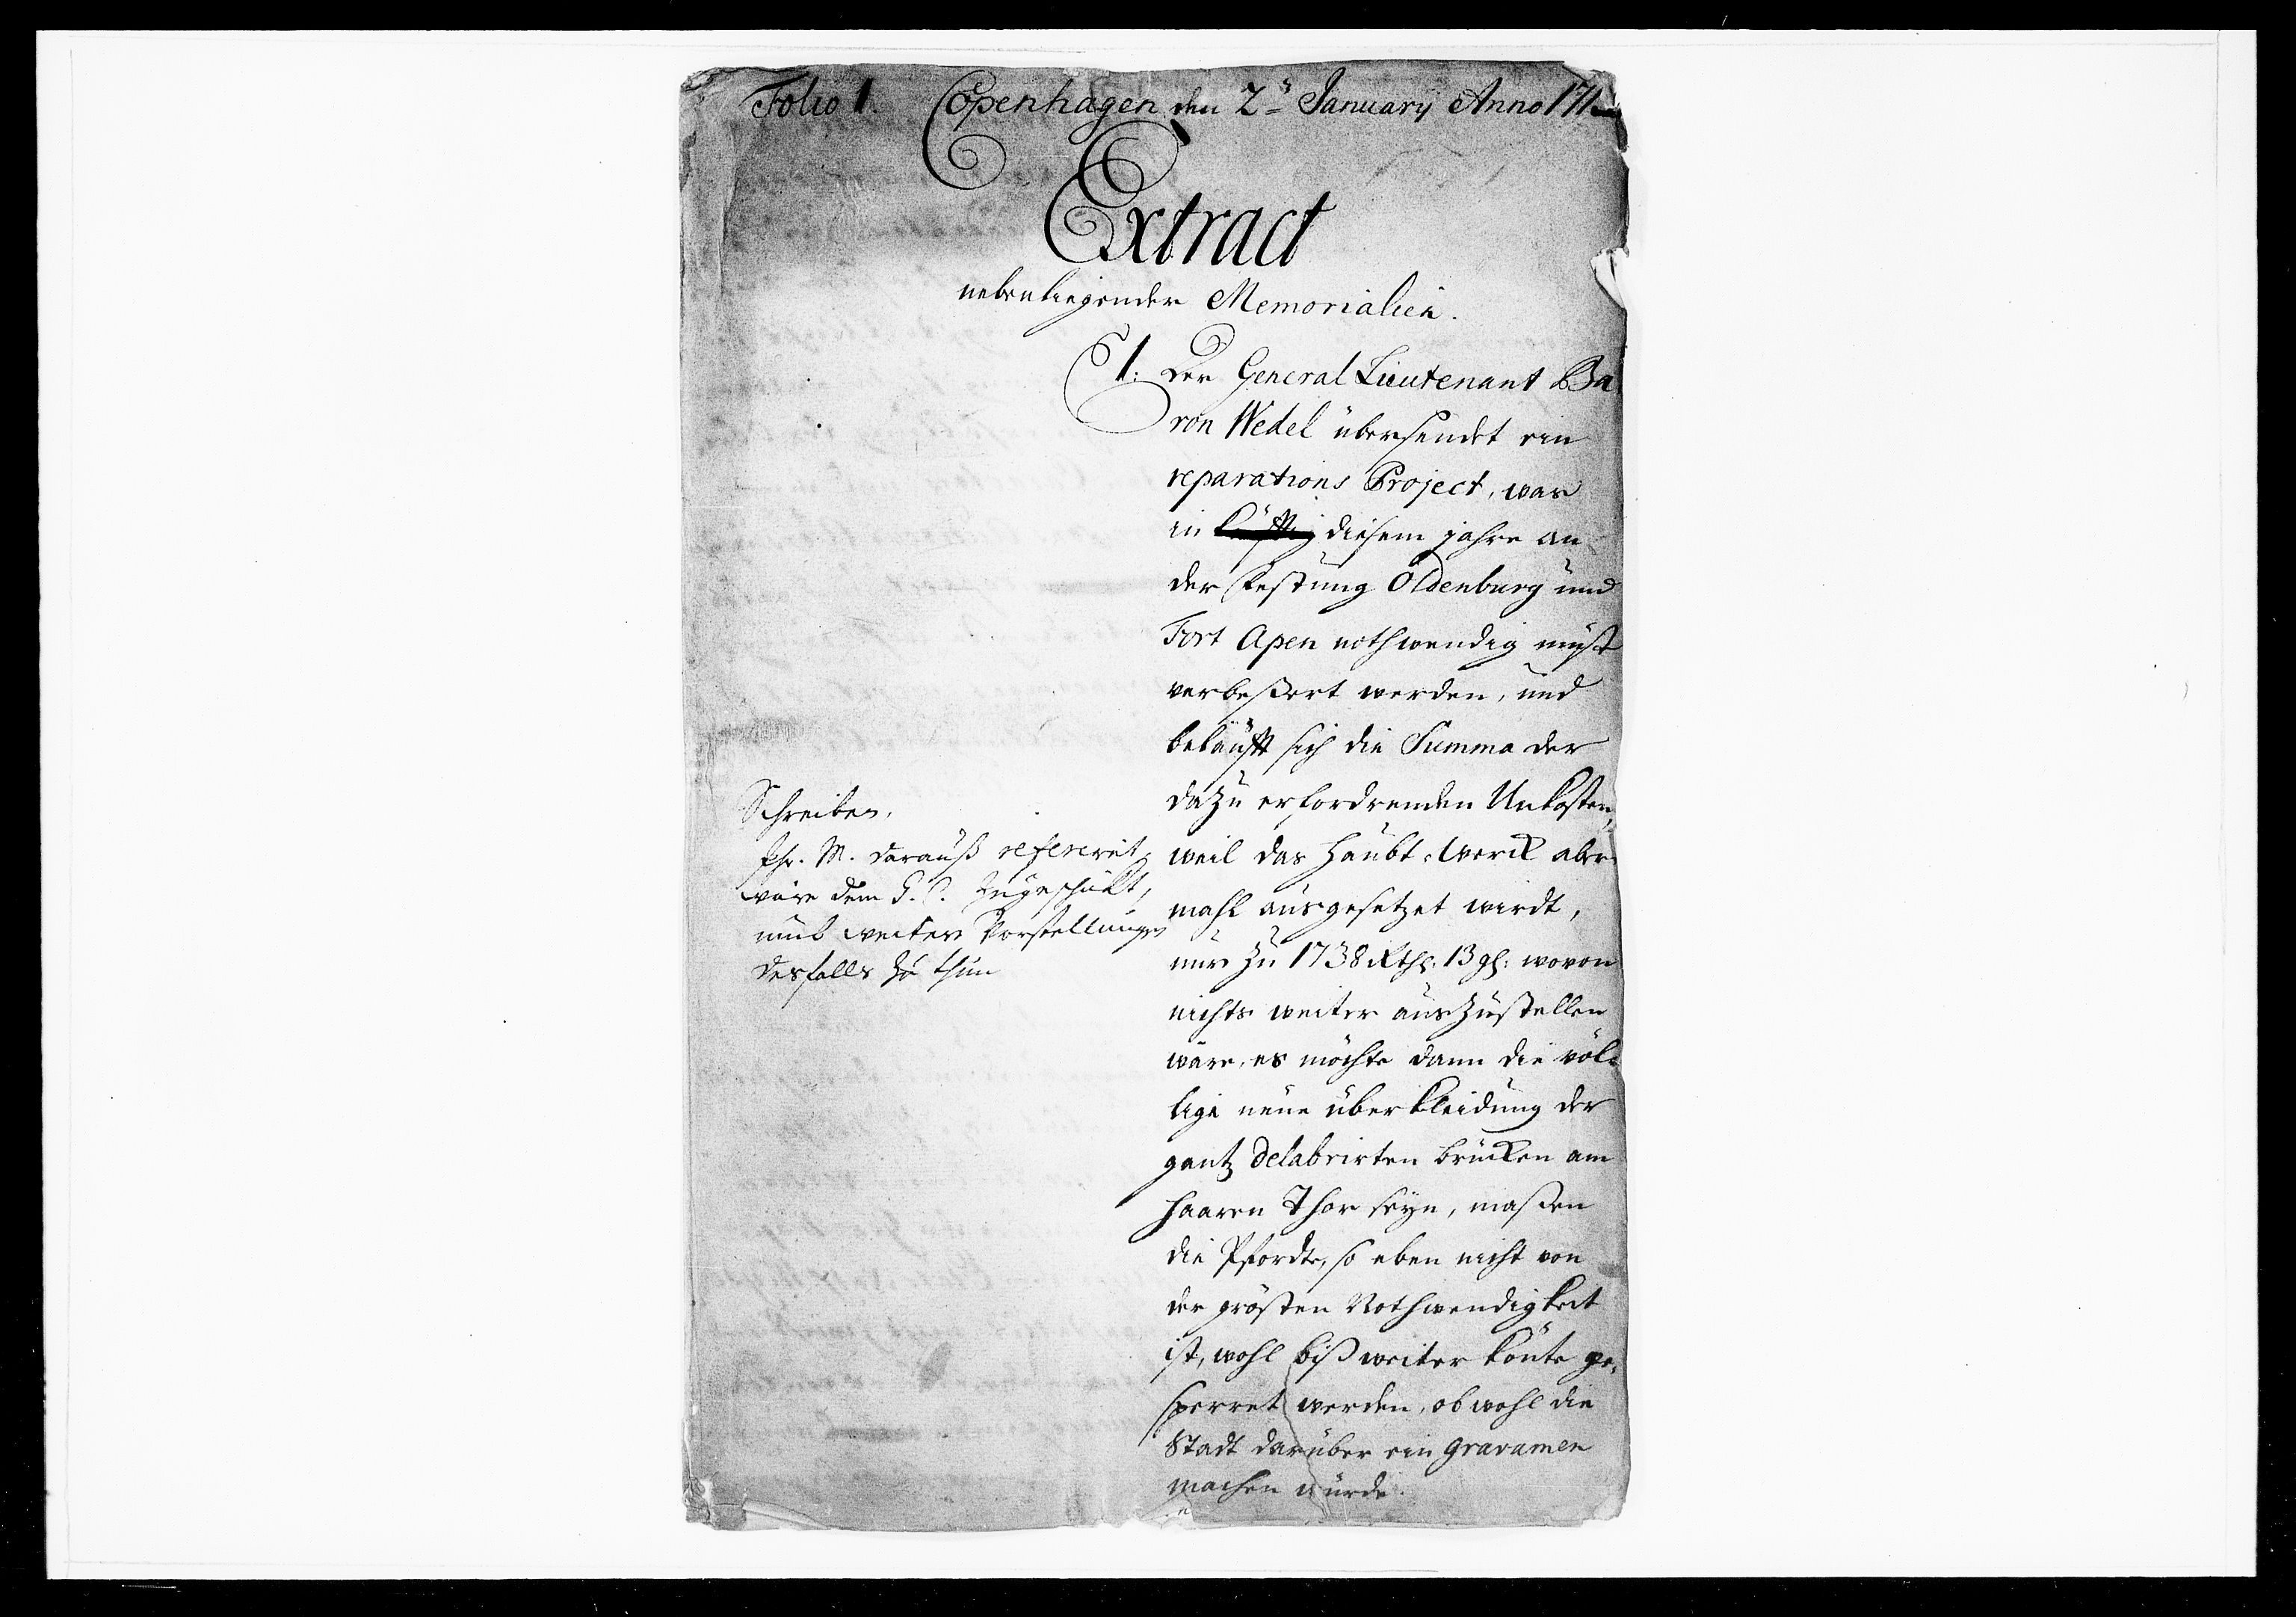 Folio 1. Copenhagen den 2ᵗ January Anno 171
Extract
nebenliegender Memorialien.
1. Der General Lieutenant Ba
ron Wedel übersendet ein
reparations Project, was
in diesem jahre an
der Festung Oldenburg und
Fort Apen nothwendig müst
verbeßert werden, und
beläufft sich die Summa der
dazu erfordrenden Unkosten,
weil das Haubt-Werck aber
mahl ausgesetzet wirdt,
nur zu 1738 Rthl: 13 gl: wovon
nichts weiter auszustellen
wäre, es möchte dann die völ-
lige neue überkleidung der
gantz delabrirten Brücken am
Haaren Thor seyn, maßen
die Pfordte, so eben nicht von
der grösten Nothwendigkeit
ist, wohl biß weiter könte ge-
sperret werden, obwohl die
Stadt darüber ein gravamen
machen würde.
Schreiben,
Ihr. M. darauß referirt,
wäre dem G. C. zugeschickt,
umb weitere Vorstellungen
desfalls zu thun